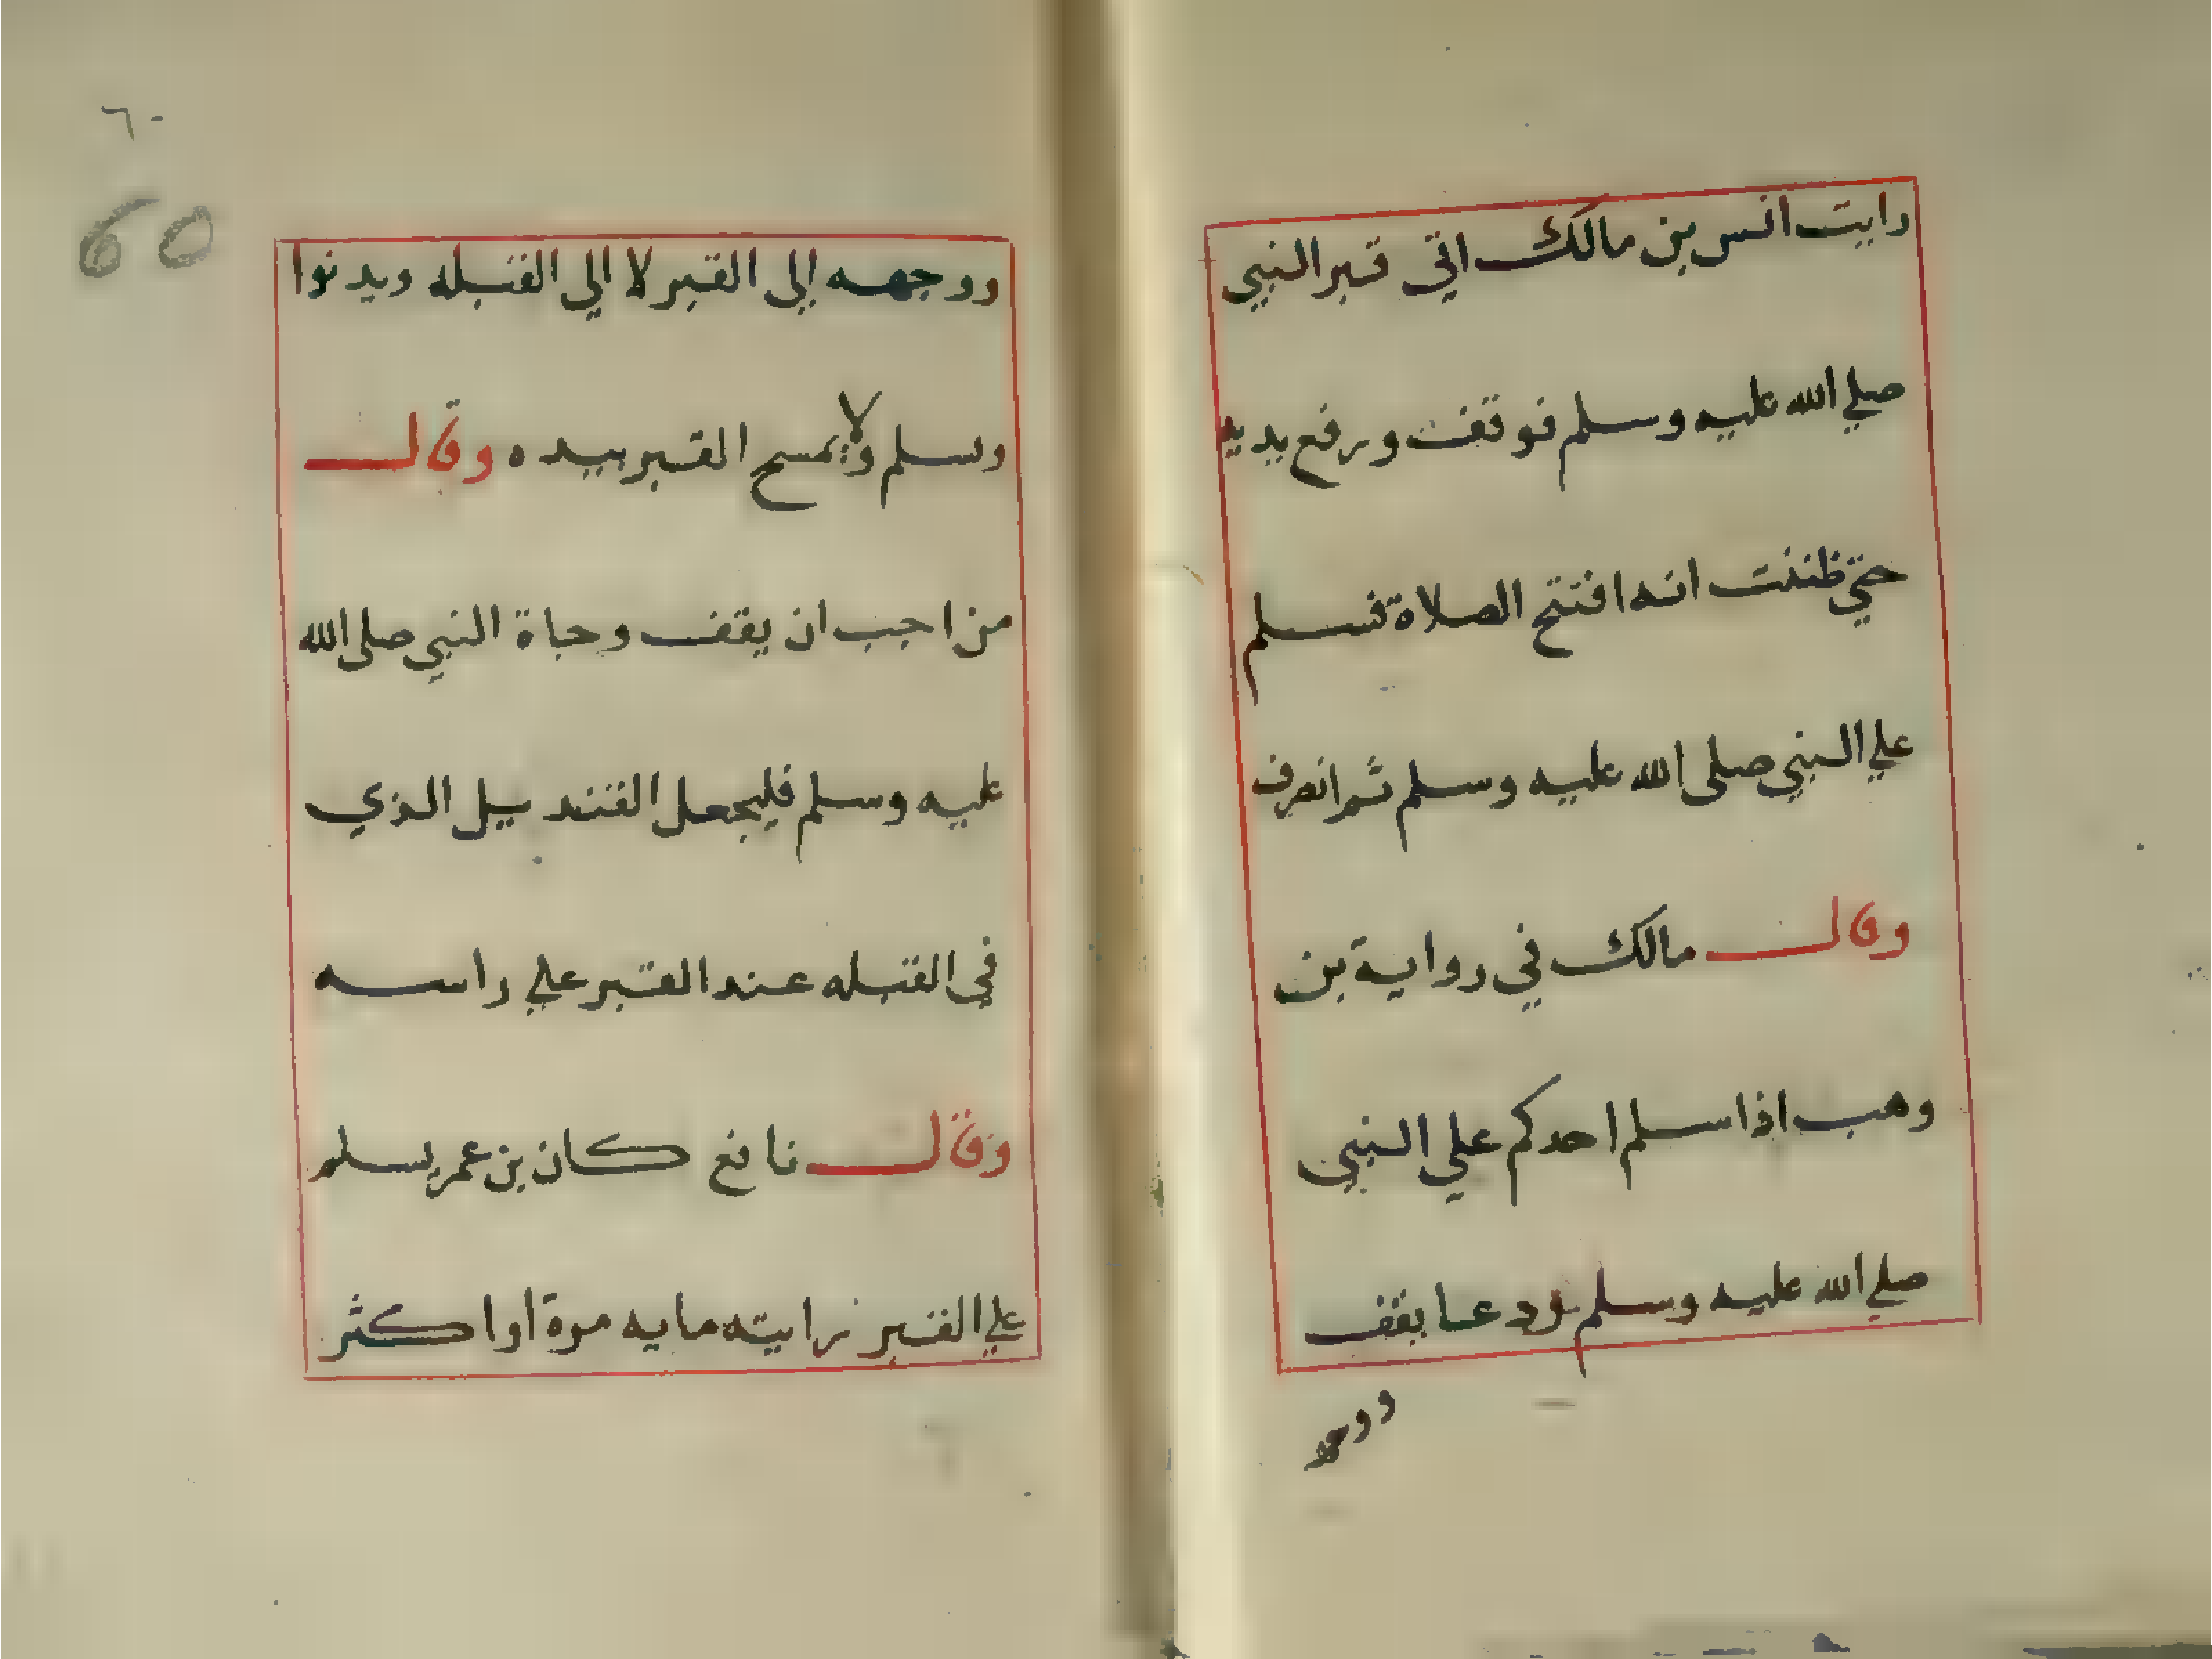 رايت انس بن مالك اتي قبر النبي
صلي الله عليه وسلم فوقف ورفع يديه
حتي ظننت انه افتتح الصلاة فسلم
علي النبي صلى الله عليه وسلم ثم انصرف
وقال مالك في رواية بن
وهب اذا سلم احدكم علي النبي
صلي الله عليه وسلم ودعا يقف
ووجهه
٦٠
60
ووجهه إلى القبر لا الي القبله ويدنوا
ويسلم ولا يمسح القبر بيده ه وقال
من احب ان يقف وجاة النبي صلى الله
عليه وسلم فليجعل القنديل الذي
في القبله عند القبر علي راسه
وقال نافع كان بن عمر يسلم
علي القبر رايته مايه مرة او اكثر